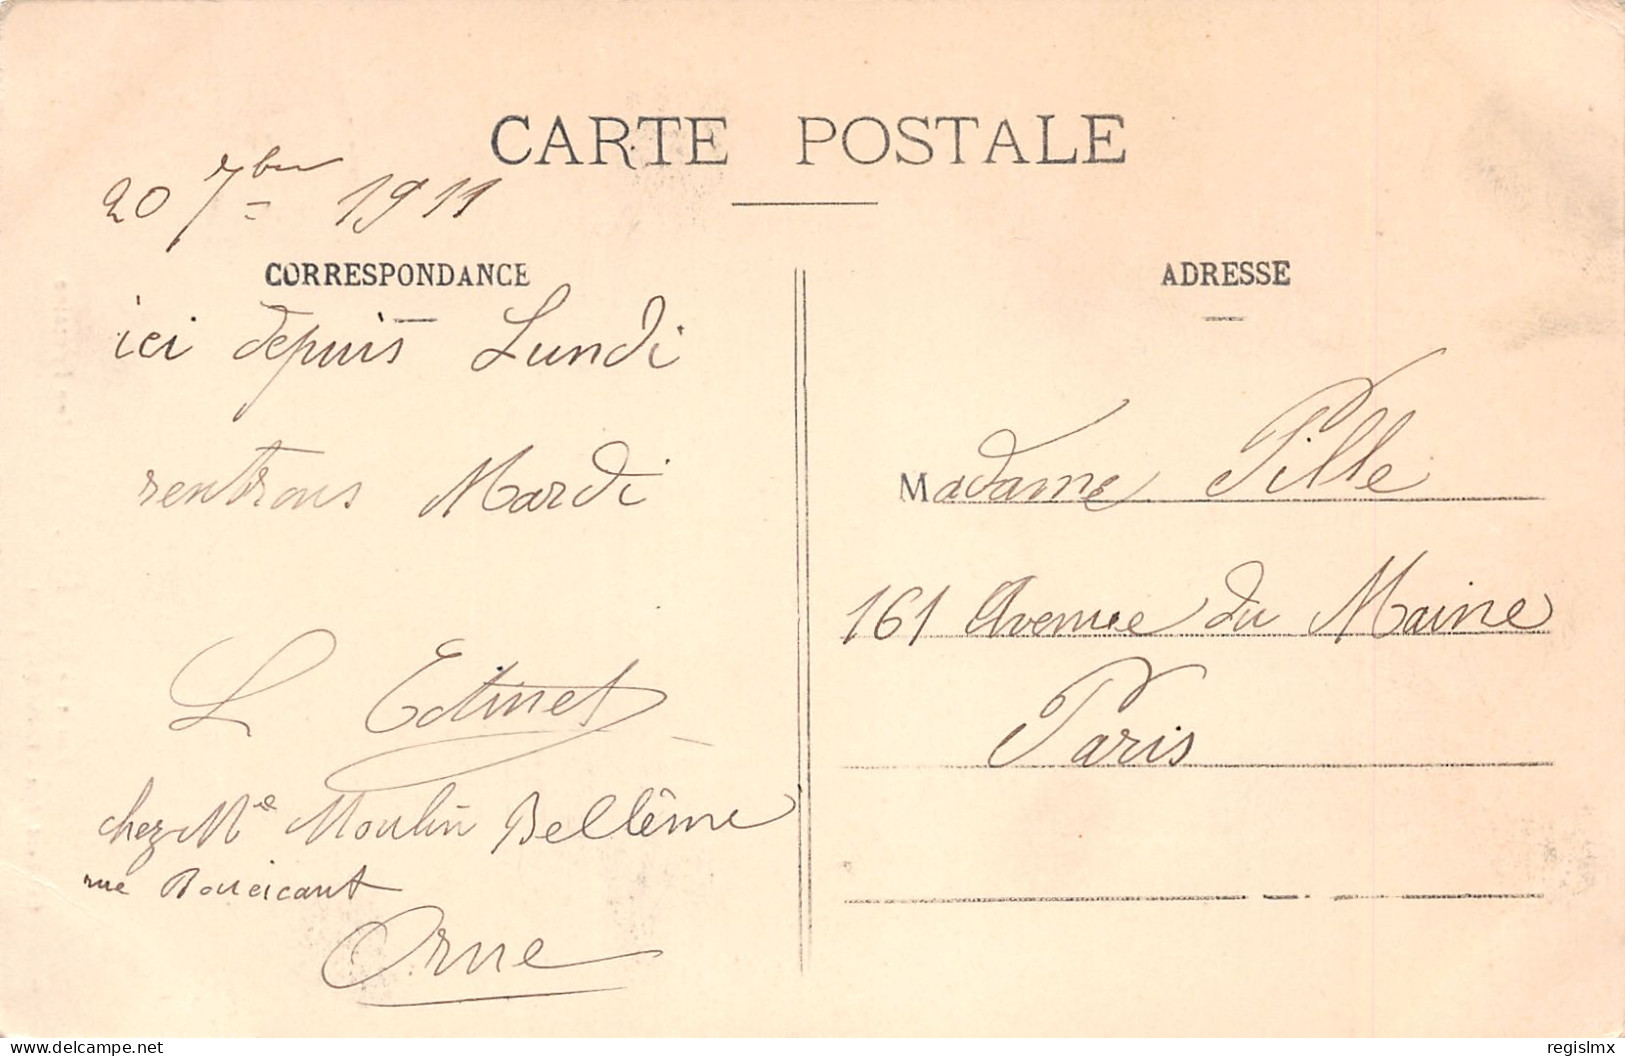 CARTE POSTALE
20 7bre 1911
CORRESPONDANCE
ici depuis Lundi
rentrons Mardi
L Etinet
chez Me Moulin Bellême
rue Boucicaut
Orne
ADRESSE
Madame Pille
161 Avenue du Maine
Paris
www.delcampe.net
regislmx